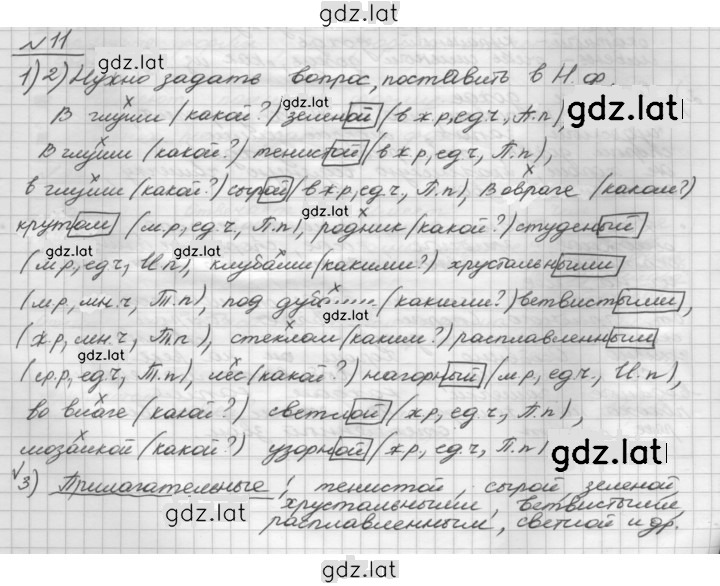 gdz.lat
№ 11
gdz.lat
1) 2) Нужно задать вопрос, поставить в Н.ф.
gdz.lat
gdz.lat
В глуши (какой?) зеленой (в ж.р, ед.ч., П.п),
В глуши (какой?) тенистой (в ж.р, ед.ч, П.п),
gdz.lat
в глуши (какой?) сырой (в ж.р, ед.ч, П.п), В овраге (каком?)
gdz.lat
крутом (м.р, ед.ч, П.п), родник (какой?) студеный
gdz.lat
gdz.lat
(м.р, ед.ч, И.п), клубами (какими?) хрустальными
(м.р, мн.ч, Т.п), под (какими?) ветвистыми,
gdz.lat
(ж.р, мн.ч, Т.п), стеклом (каким?) расплавленным
gdz.lat
(ср.р, ед.ч, Т.п), лес (какой?) нагорный (м.р, ед.ч, И.п),
во влаге (какой?) светлой (ж.р, ед.ч, П.п),
мозаикой (какой?) узорной (ж.р, ед.ч, П.п)
gdz.lat
3) Прилагательные: тенистой, сырой, зеленой
хрустальными, ветвистыми,
gdz.lat
расплавленным, светлой и др.
gdz.lat